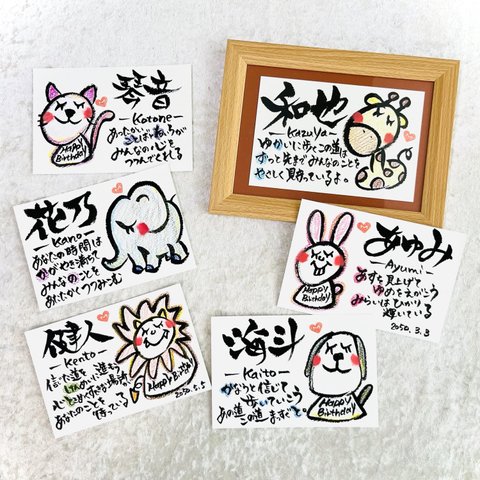 琴音
Kotone
あったかい
ことばとねいろが
みんなの心を
つつんでくれる
Happy Birthday
和也
Kazuya
ゆかいに歩くこの道は
ずっと先までみんなのことを
やさしく見守っているよ。
花乃
Kano
あなたの時間は
かがやき満ちて
みんなのことを
あたたかくつつみこむ
あゆみ
Ayumi
あすを見上げて
ゆめをえがこう
みらいはひかり
輝いている
2050.3.3
Happy Birthday
健人
Kento
信じた道を
けんめいに進もう
心ときめくすてきな場所が
あなたのことを
待っている
2050.5.5
Happy Birthday
海斗
Kaito
かならずと信じて
歩いていこう
あの道この道まっすぐと。
Happy Birthday